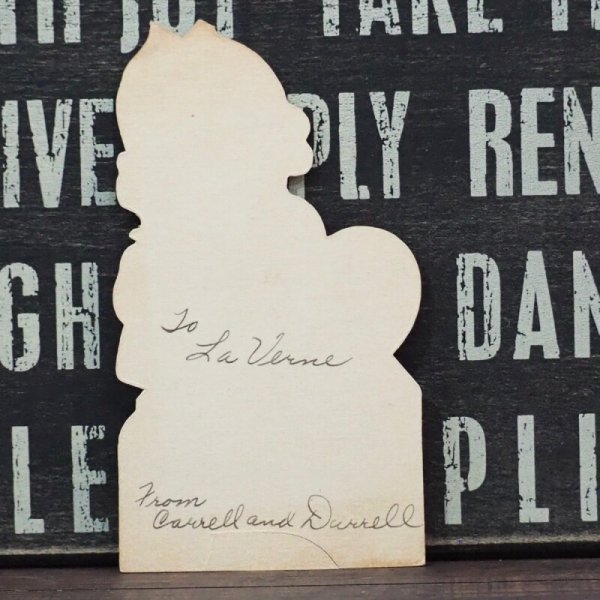 TAKE
IVE PLY REN
GH DAN
LE PLI
To
La Verne
From
Carrell and Durrell